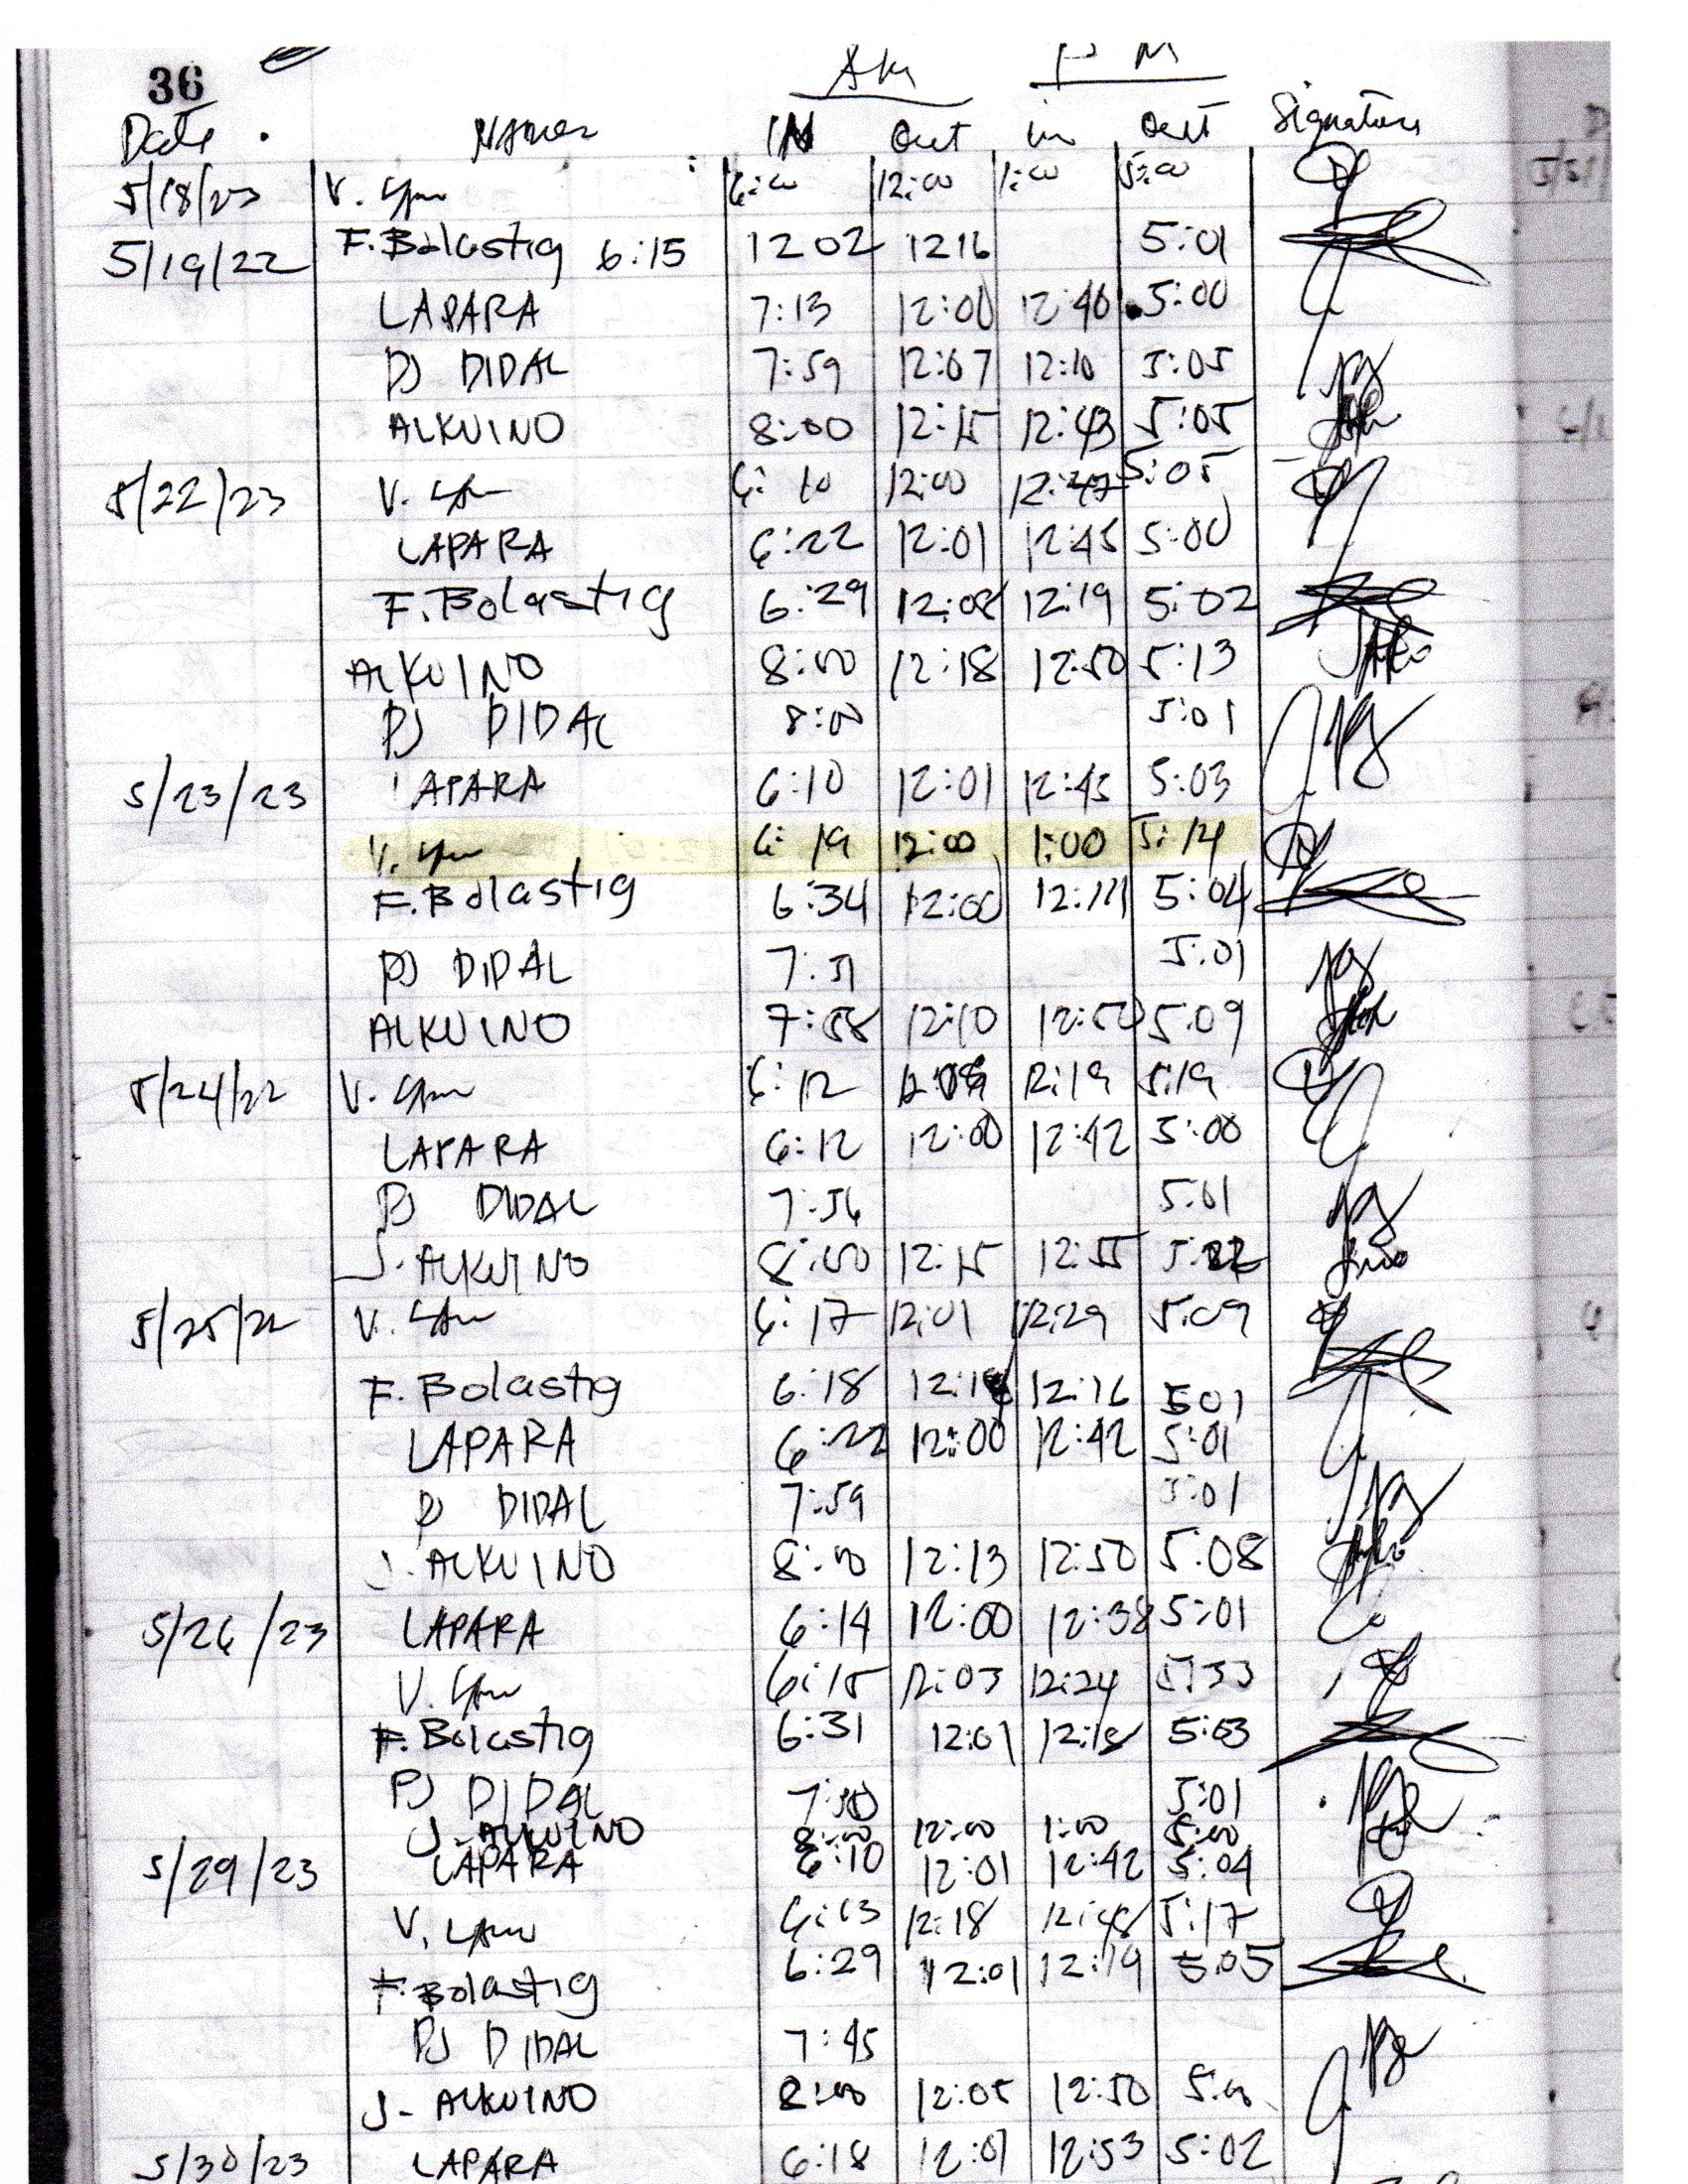 36
AM PM
Date Names IN Out in Out Signature
5/18/23 V. 6:00 12:00 1:00 5:00
5/19/22 F.Bolastig 6:15 12 02 12 16 5:01
LAPARA 7:13 12:00 12:40 5:00
PJ DIDAL 7:59 12:07 12:10 5:05
ALKUINO 8:00 12:15 12:43 5:05
5/22/23 V. 6:10 12:00 12:47 5:05
LAPARA 6:22 12:01 12:45 5:00
F.Bolastig 6:29 12:08 12:19 5:02
ALKUINO 8:00 12:18 12:50 5:13
PJ DIDAL 8:00 5:01
5/23/23 LAPARA 6:10 12:01 12:45 5:03
V. 6:19 12:00 1:00 5:14
F.Bolastig 6:34 12:00 5:04
PJ DIDAL 7:31 5:01
ALKUINO 7:58 12:10 12:50 5:09
5/24/22 V. 6:12 12:19 5:19
LAPARA 6:12 12:00 12:42 5:00
PJ DIDAL 7:56 5:01
J. ALKUINO 8:00 12:15 12:55
5/25/22 V. 6:17 12:01 12:29 5:09
F.Bolastig 6:18 12:16 501
LAPARA 6:22 12:00 12:42 5:01
PJ DIDAL 7:59 5:01
J. ALKUINO 8:00 12:13 12:50 5:08
5/26/23 LAPARA 6:14 12:00 12:38 5:01
V. 6:15 12:03 12:24 5:33
F.Bolastig 6:31 12:01 12:18 5:03
PJ DIDAL 7:50 5:01
J. ALKUINO 8:00 12:00 1:00 5:00
5/29/23 LAPARA 6:10 12:01 12:42 5:04
V. 6:13 12:18 12:48 5:17
F.Bolastig 6:29 12:01 12:19 5:05
PJ DIDAL 7:45
J- ALKUINO 8:00 12:05 12:50
5/30/23 LAPARA 6:18 12:01 12:53 5:02